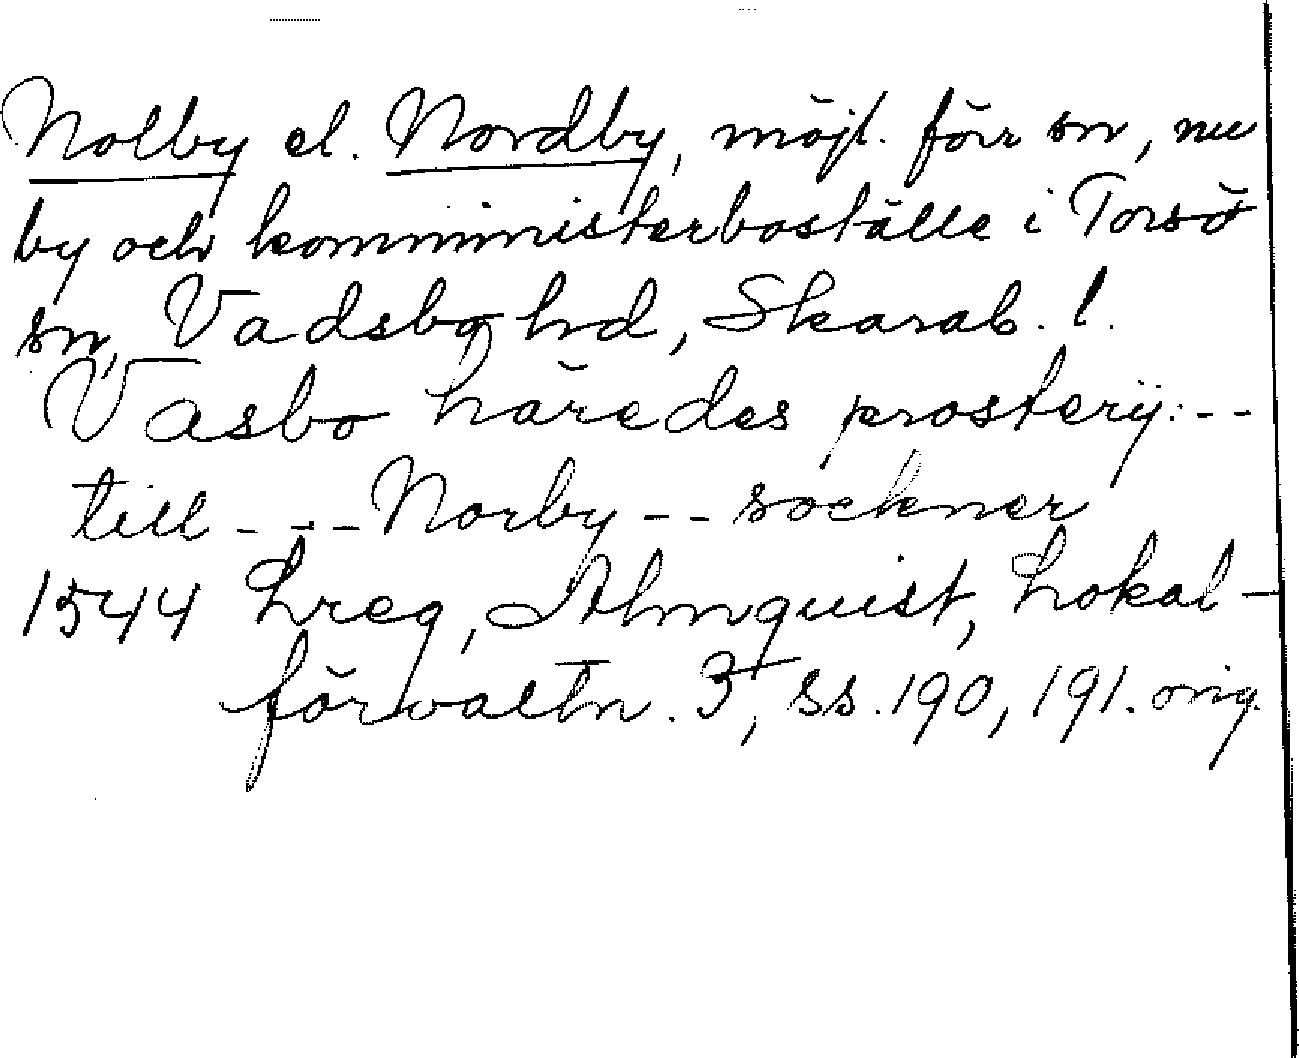 Nolby el. Nordby, möjl. förr sn, nu
by och komministerboställe i Torsö
sn, Vadsbo hd, Skarab. l.
Vasbo häredes prosterij: --
till - - - Norby -- sockner
1544 Lreg, Almquist, Lokal-
förvaltn. 3, ss. 190, 191. orig.